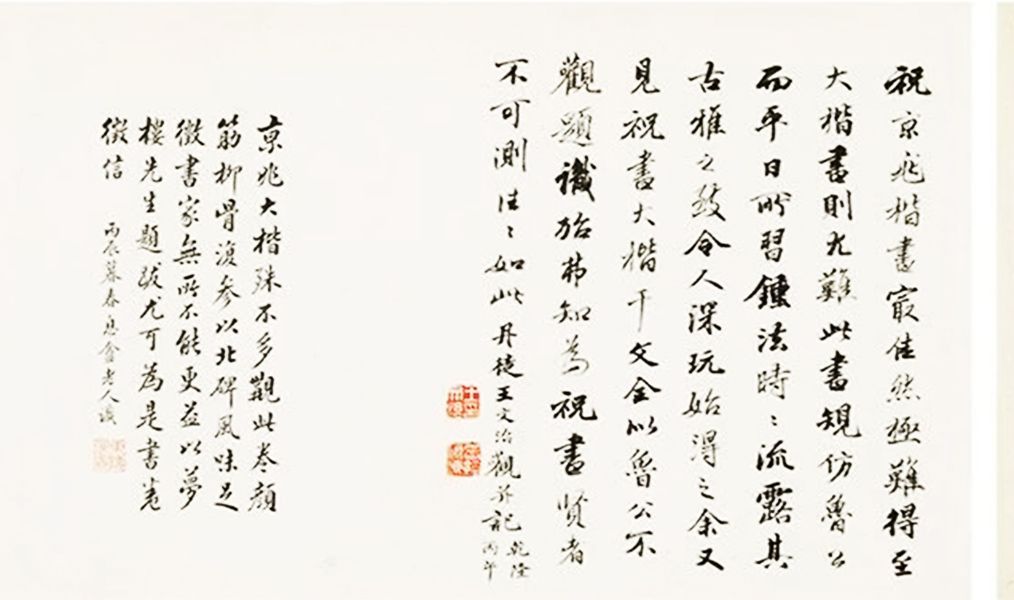 祝京兆楷書寂佳然極難得至
大楷書則尤難此書規仿魯公
而平日所習鍾法時〻流露其
古雅之致令人深玩始得之余又
見祝書大楷千文全似魯公不
觀題識殆弗知為祝書賢者
不可測往〻如此丹徒王文治觀并記乾隆
丙午
京兆大楷殊不多觀此卷顏
筋柳骨復参以北碑風味足
徵書家無所不能更益以夢
樓先生題跋尤可為是書卷
徵信 丙辰暮春息盦老人識